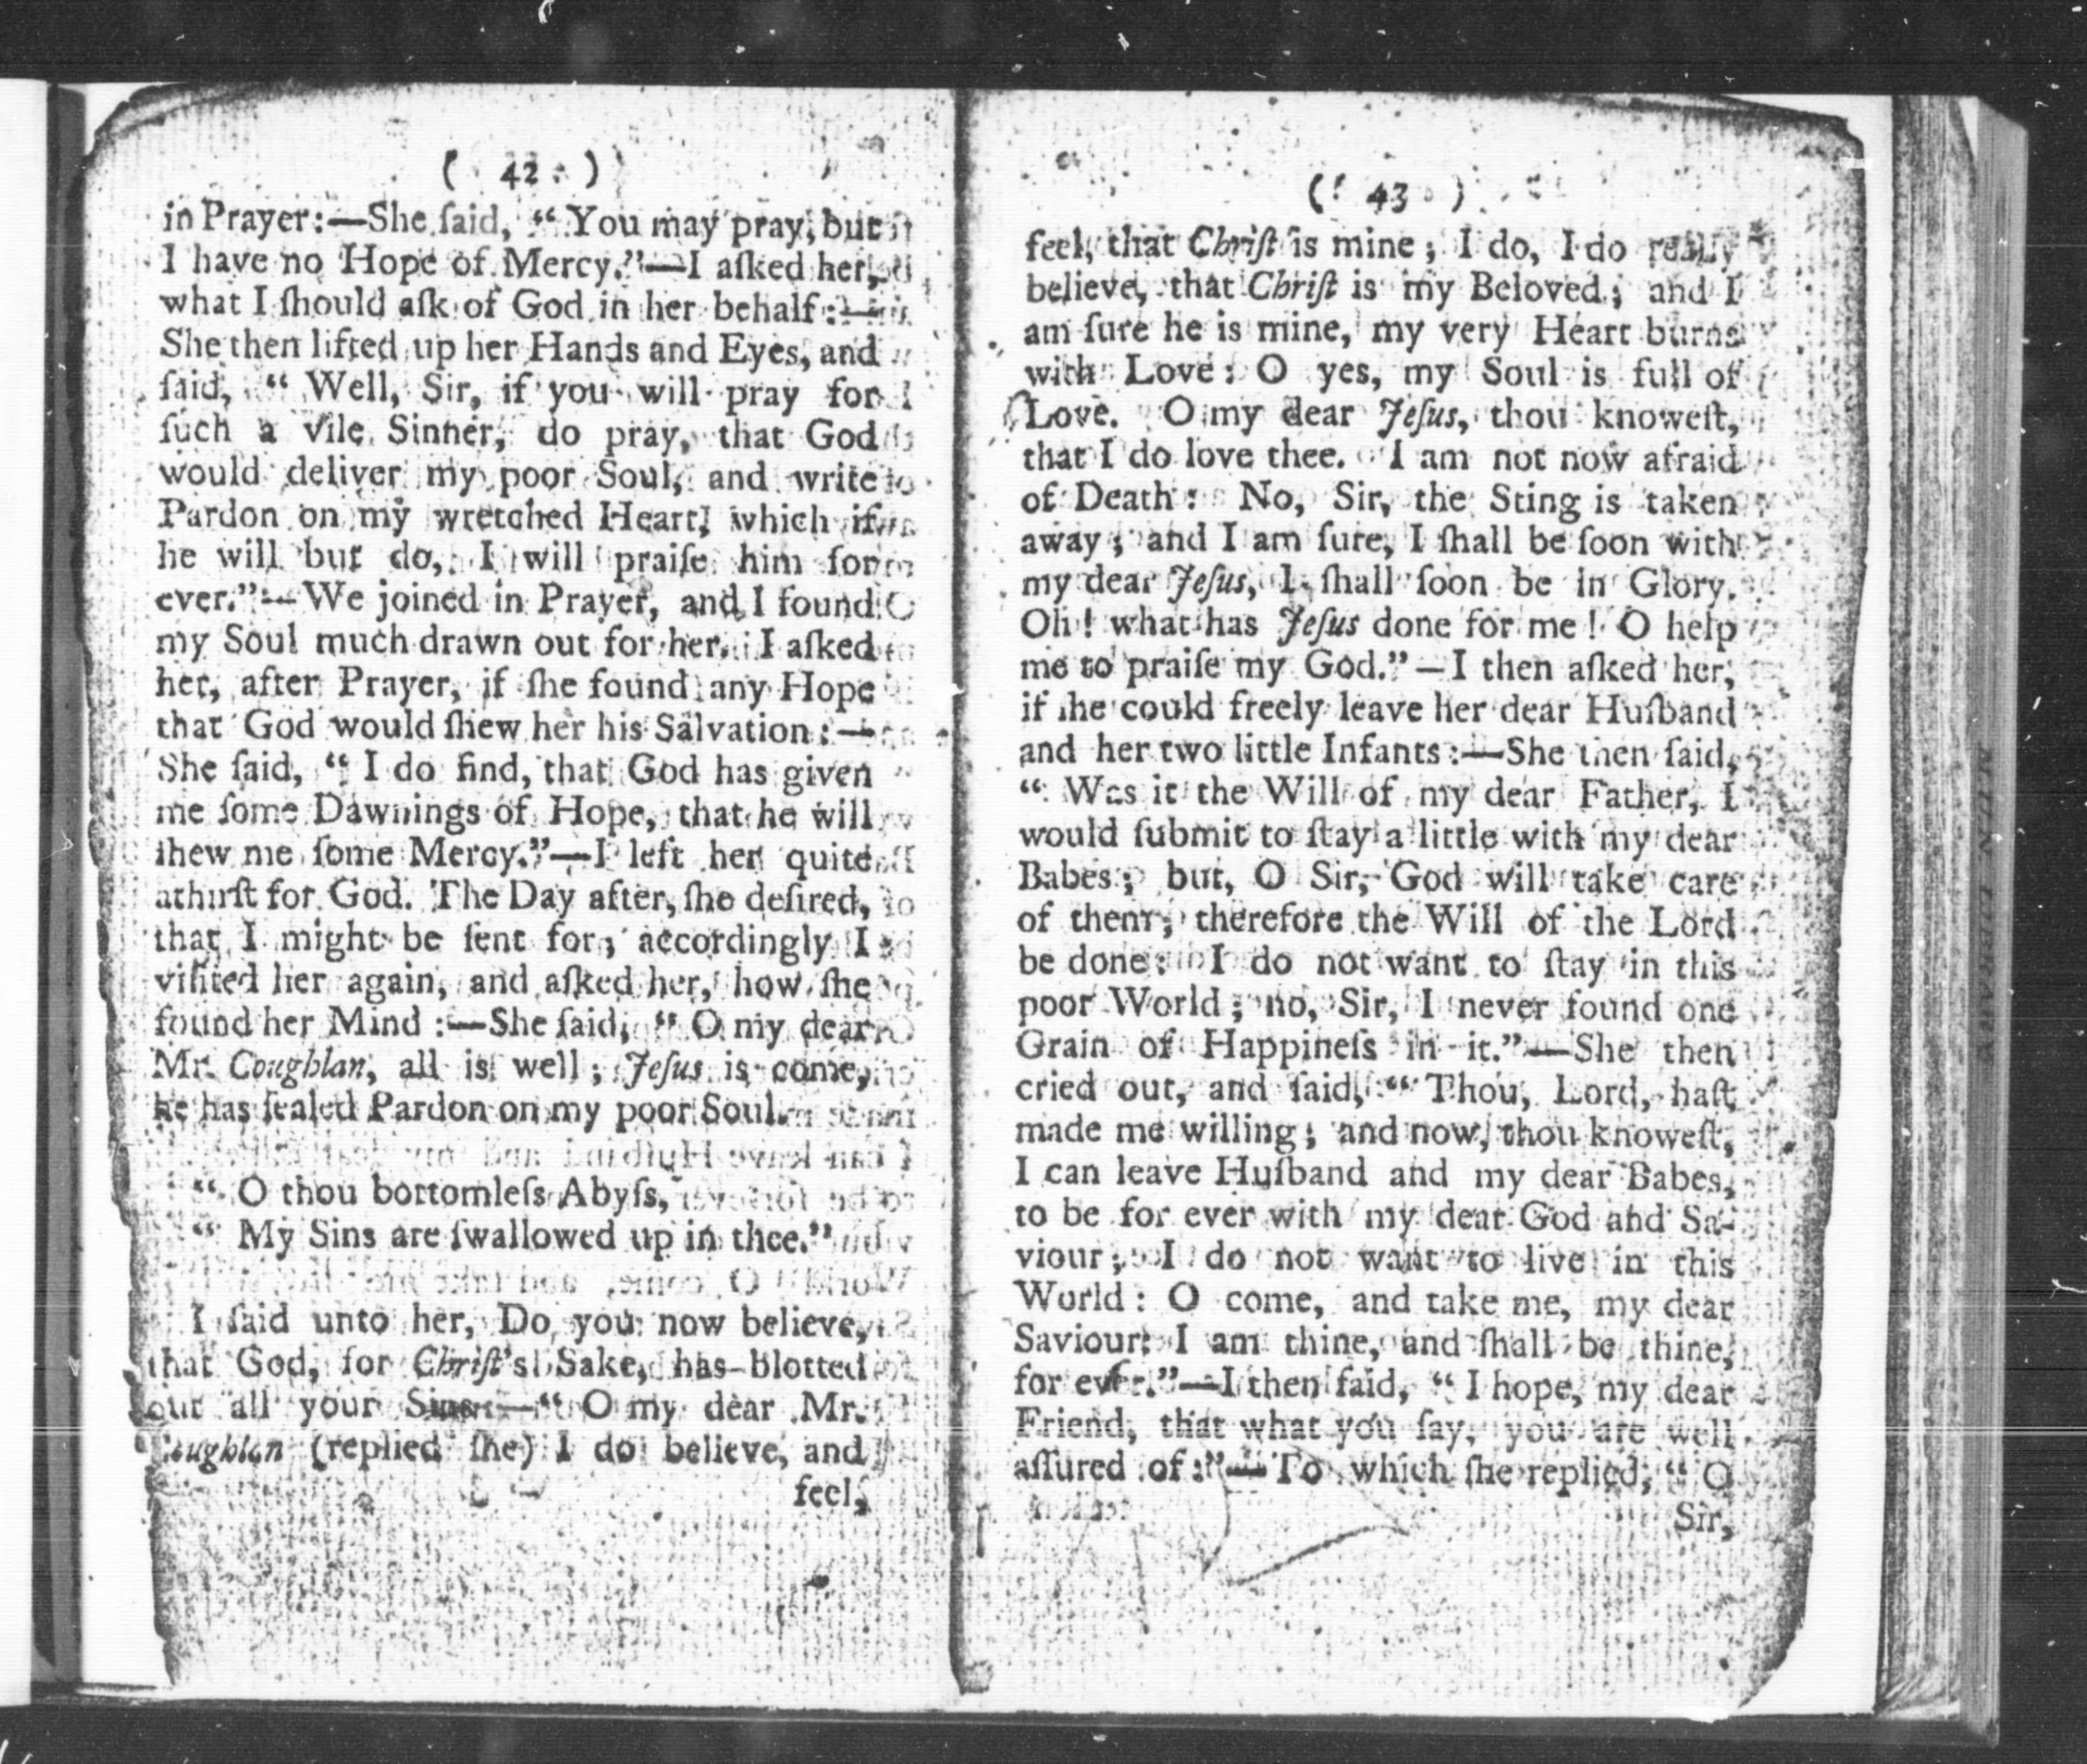 ( 42 )
in Prayer:—She ſaid, “ You may pray, but
I have no Hope of Mercy.”—I aſked her,
what I ſhould aſk of God in her behalf:—
She then lifted up her Hands and Eyes, and
ſaid, “ Well, Sir, if you will pray for
ſuch a vile Sinner, do pray, that God
would deliver my poor Soul, and write
Pardon on my wretched Heart, which if
he will but do, I will praiſe him for
ever.”—We joined in Prayer, and I found
my Soul much drawn out for her. I aſked
her, after Prayer, if ſhe found any Hope
that God would ſhew her his Salvation:—
She ſaid, “ I do find, that God has given
me ſome Dawnings of Hope, that he will
ſhew me ſome Mercy.”—I left her quite
athirſt for God. The Day after, ſhe deſired,
that I might be ſent for, accordingly I
viſited her again, and aſked her, how ſhe
found her Mind:—She ſaid, “ O my dear
Mr. Coughlan, all is well; Jeſus is come,
he has ſealed Pardon on my poor Soul.
“ O thou bottomleſs Abyſs,
“ My Sins are ſwallowed up in thee.”
I ſaid unto her, Do you now believe,
that God, for Chriſt's Sake, has blotted
out all your Sins:—“ O my dear Mr.
Coughlan (replied ſhe) I do believe, and
feel,
( 43 )
feel, that Chriſt is mine; I do, I do really
believe, that Chriſt is my Beloved; and I
am ſure he is mine, my very Heart burns
with Love: O yes, my Soul is full of
Love. O my dear Jeſus, thou knoweſt,
that I do love thee. I am not now afraid
of Death: No, Sir, the Sting is taken
away; and I am ſure, I ſhall be ſoon with
my dear Jeſus, I ſhall ſoon be in Glory.
Oh! what has Jeſus done for me! O help
me to praiſe my God.”—I then aſked her,
if ſhe could freely leave her dear Huſband
and her two little Infants:—She then ſaid,
“ Was it the Will of my dear Father, I
would ſubmit to ſtay a little with my dear
Babes; but, O Sir, God will take care
of them; therefore the Will of the Lord
be done: I do not want to ſtay in this
poor World; no, Sir, I never found one
Grain of Happineſs in it.”—She then
cried out, and ſaid, “ Thou, Lord, haſt
made me willing; and now, thou knoweſt,
I can leave Huſband and my dear Babes,
to be for ever with my dear God and Sa-
viour; I do not want to live in this
World: O come, and take me, my dear
Saviour: I am thine, and ſhall be thine,
for ever.”—I then ſaid, “ I hope, my dear
Friend, that what you ſay, you are well
aſſured of:”—To which ſhe replied, “ O
Sir,